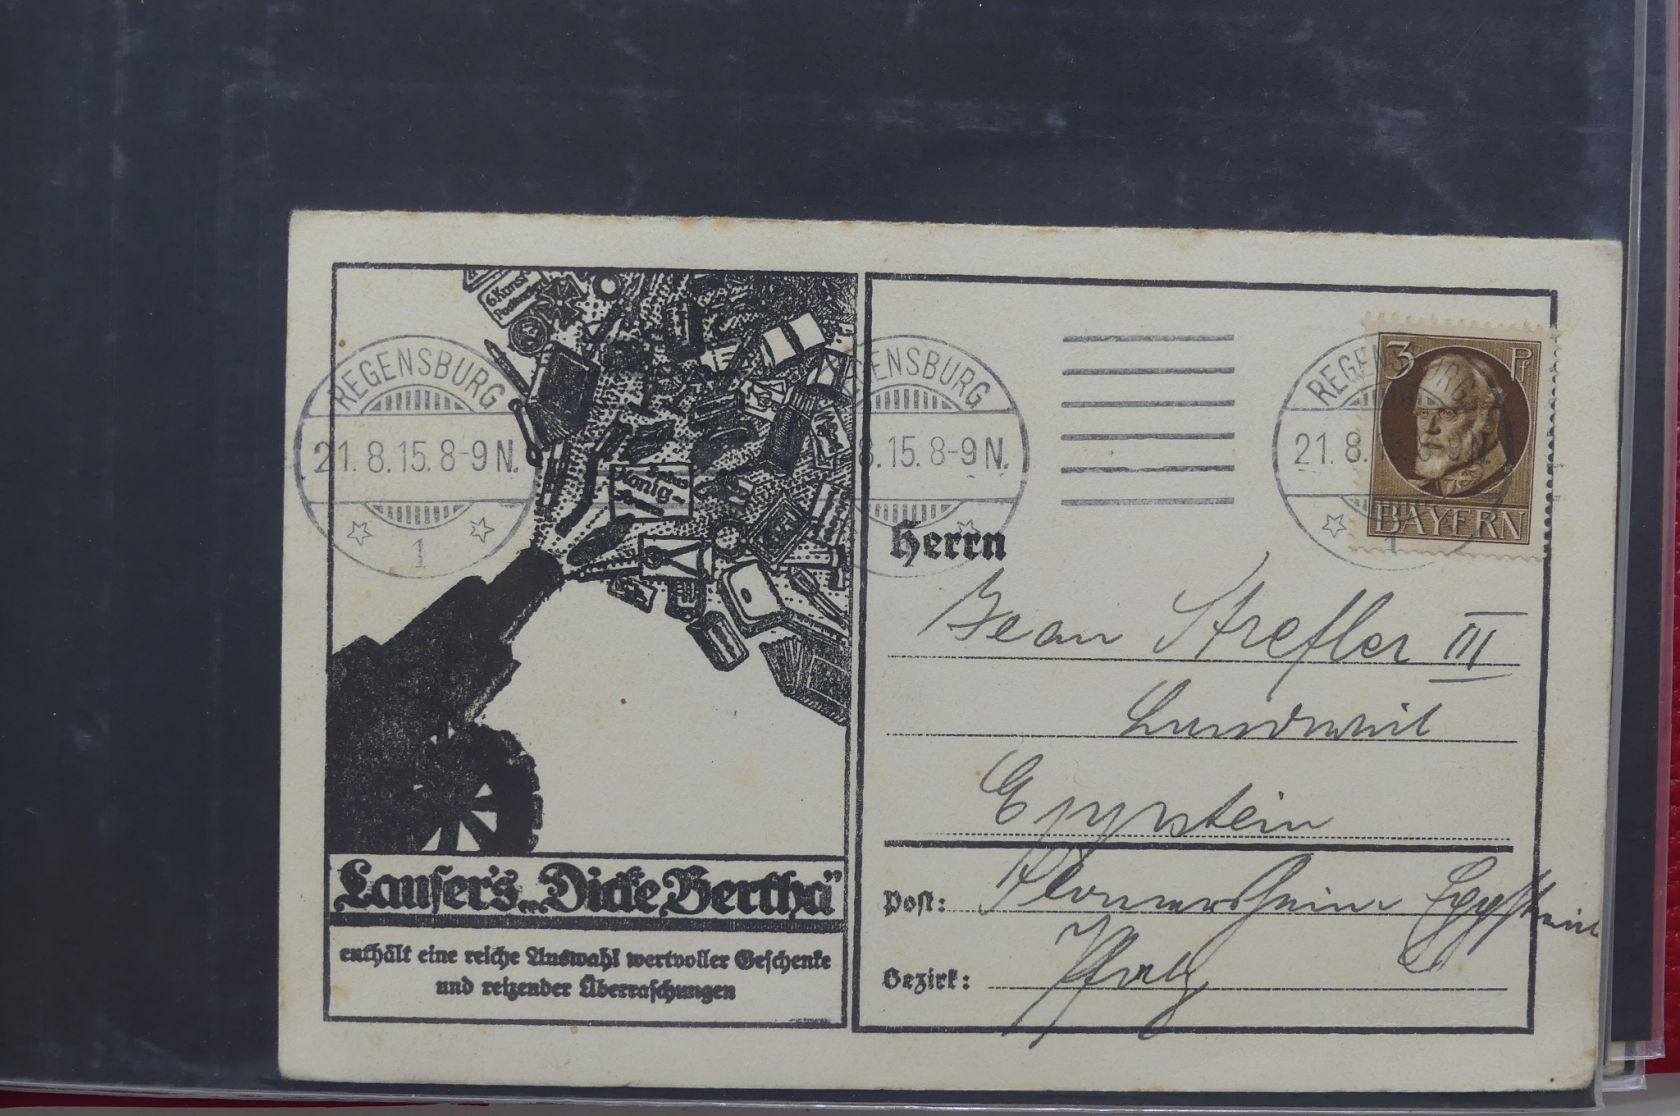 6. Konser
REGENSBURG
21.8.15.8-9 N.
1
König
Lauser's „Dicke Bertha"
enthält eine reiche Auswahl wertvoller Geschenke
und reizender Überraschungen
ENSBURG
8.15.8-9 N.
REGENSBURG
21.8.15.8-9 N.
1
3 Pf
BAYERN
Herrn
Jean Strefler III
Landwirt
Eppstein
Post: Flomersheim Eppstein
Bezirk: Pfalz